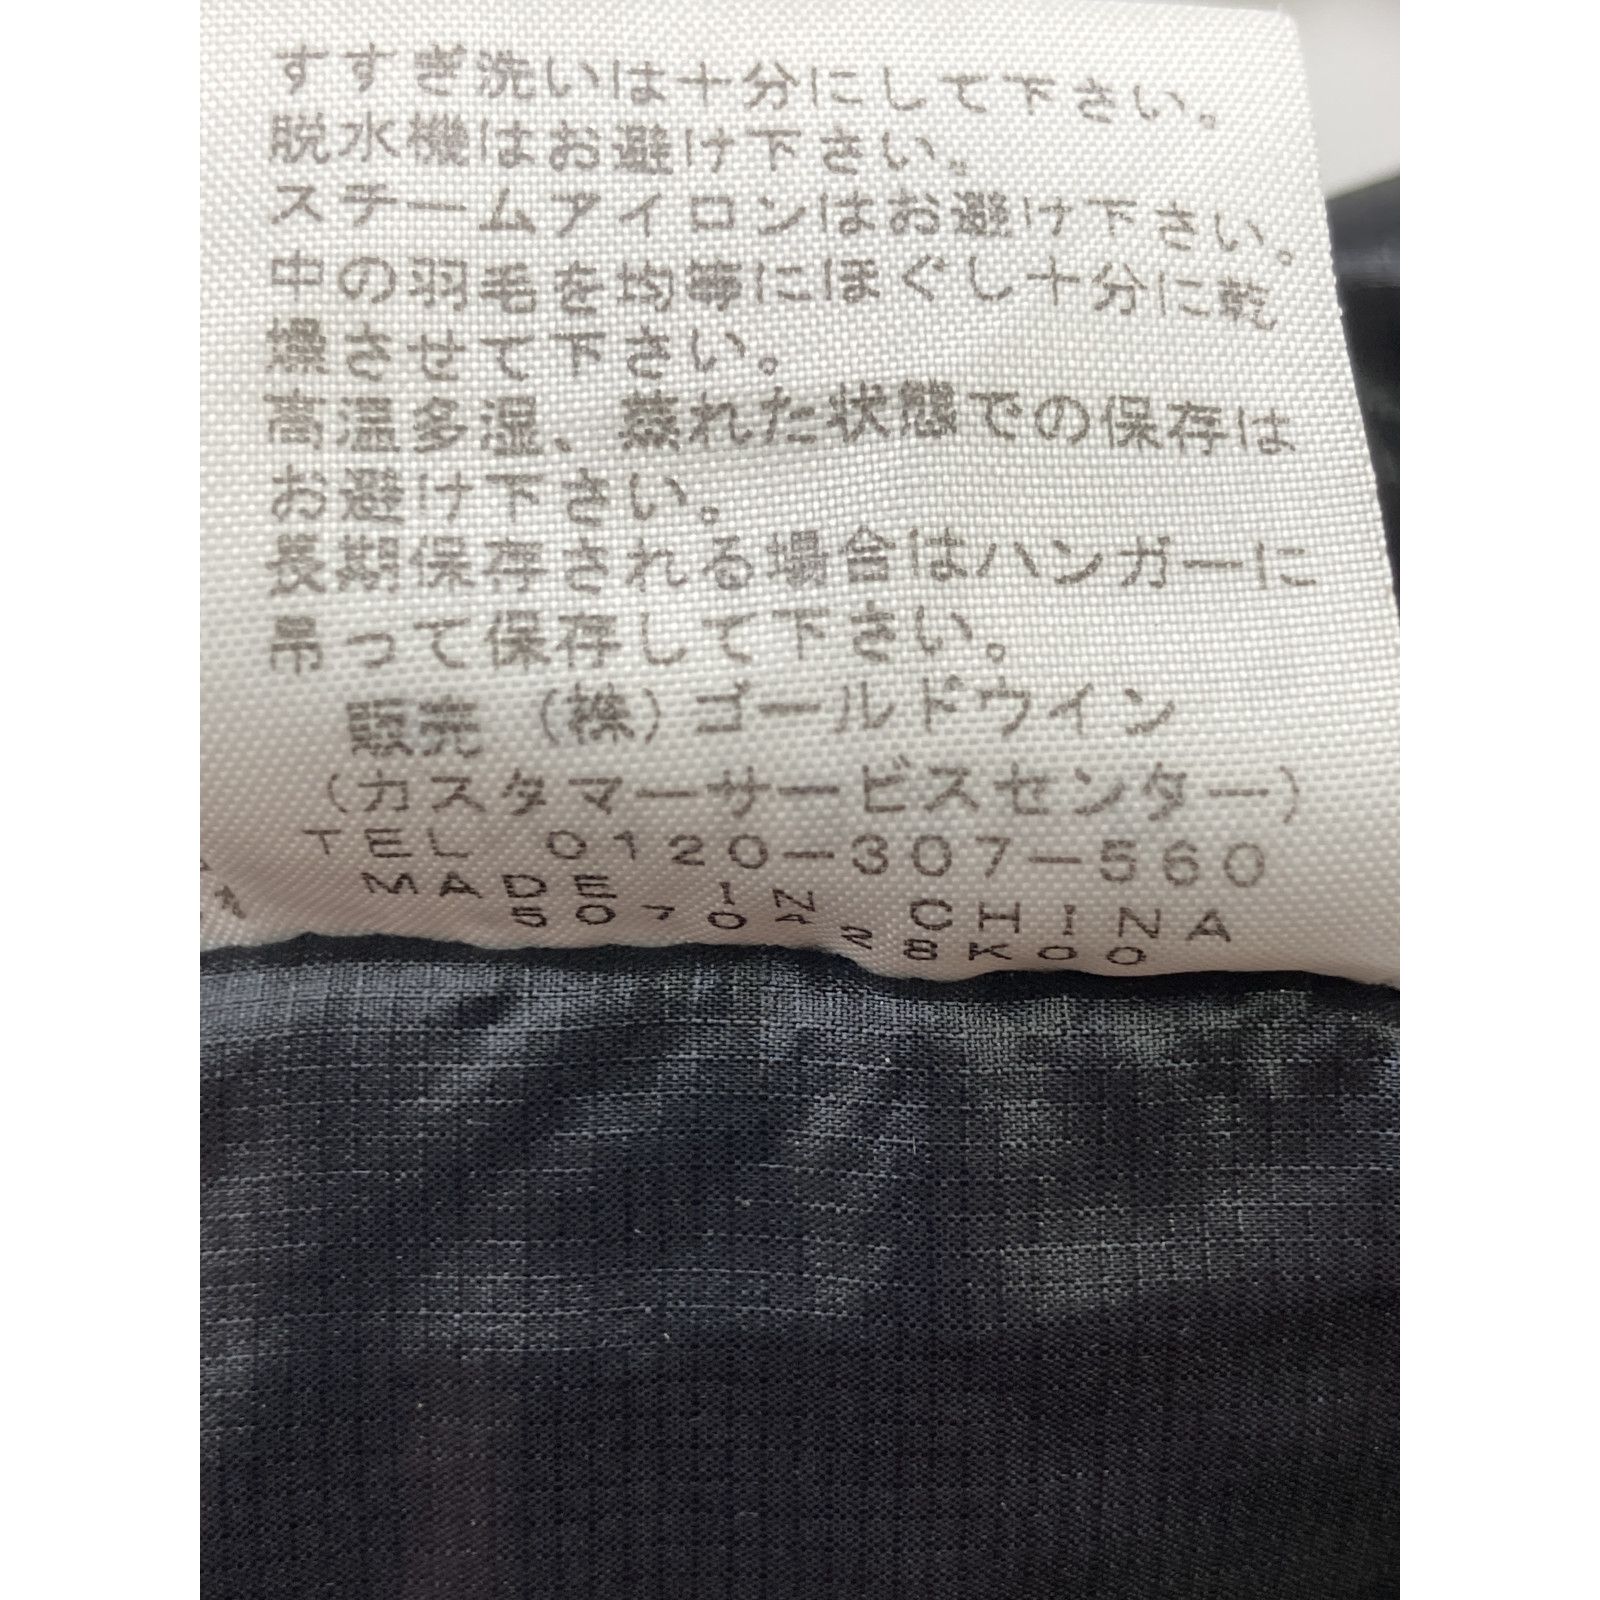 すすぎ洗いは十分にして下さい。
脱水機はお避け下さい。
スチームアイロンはお避け下さい。
中の羽毛を均等にほぐし十分に乾
燥させて下さい。
高温多湿、蒸れた状態での保存は
お避け下さい。
長期保存される場合はハンガーに
吊って保存して下さい。
販売 (株)ゴールドウイン
(カスタマーサービスセンター)
TEL 0120-307-560
MADE IN CHINA